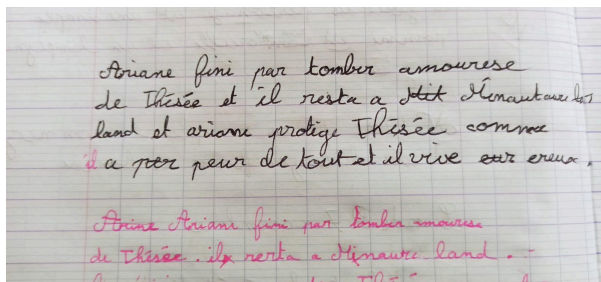 Ariane fini par tomber amourese
de Thésée et il resta a Minautaure
land et ariane protige Thésée comme
il a peur de tout et il vive ereux.
Ariane fini par tomber amourese
de Thésée. il resta a Minaure land.